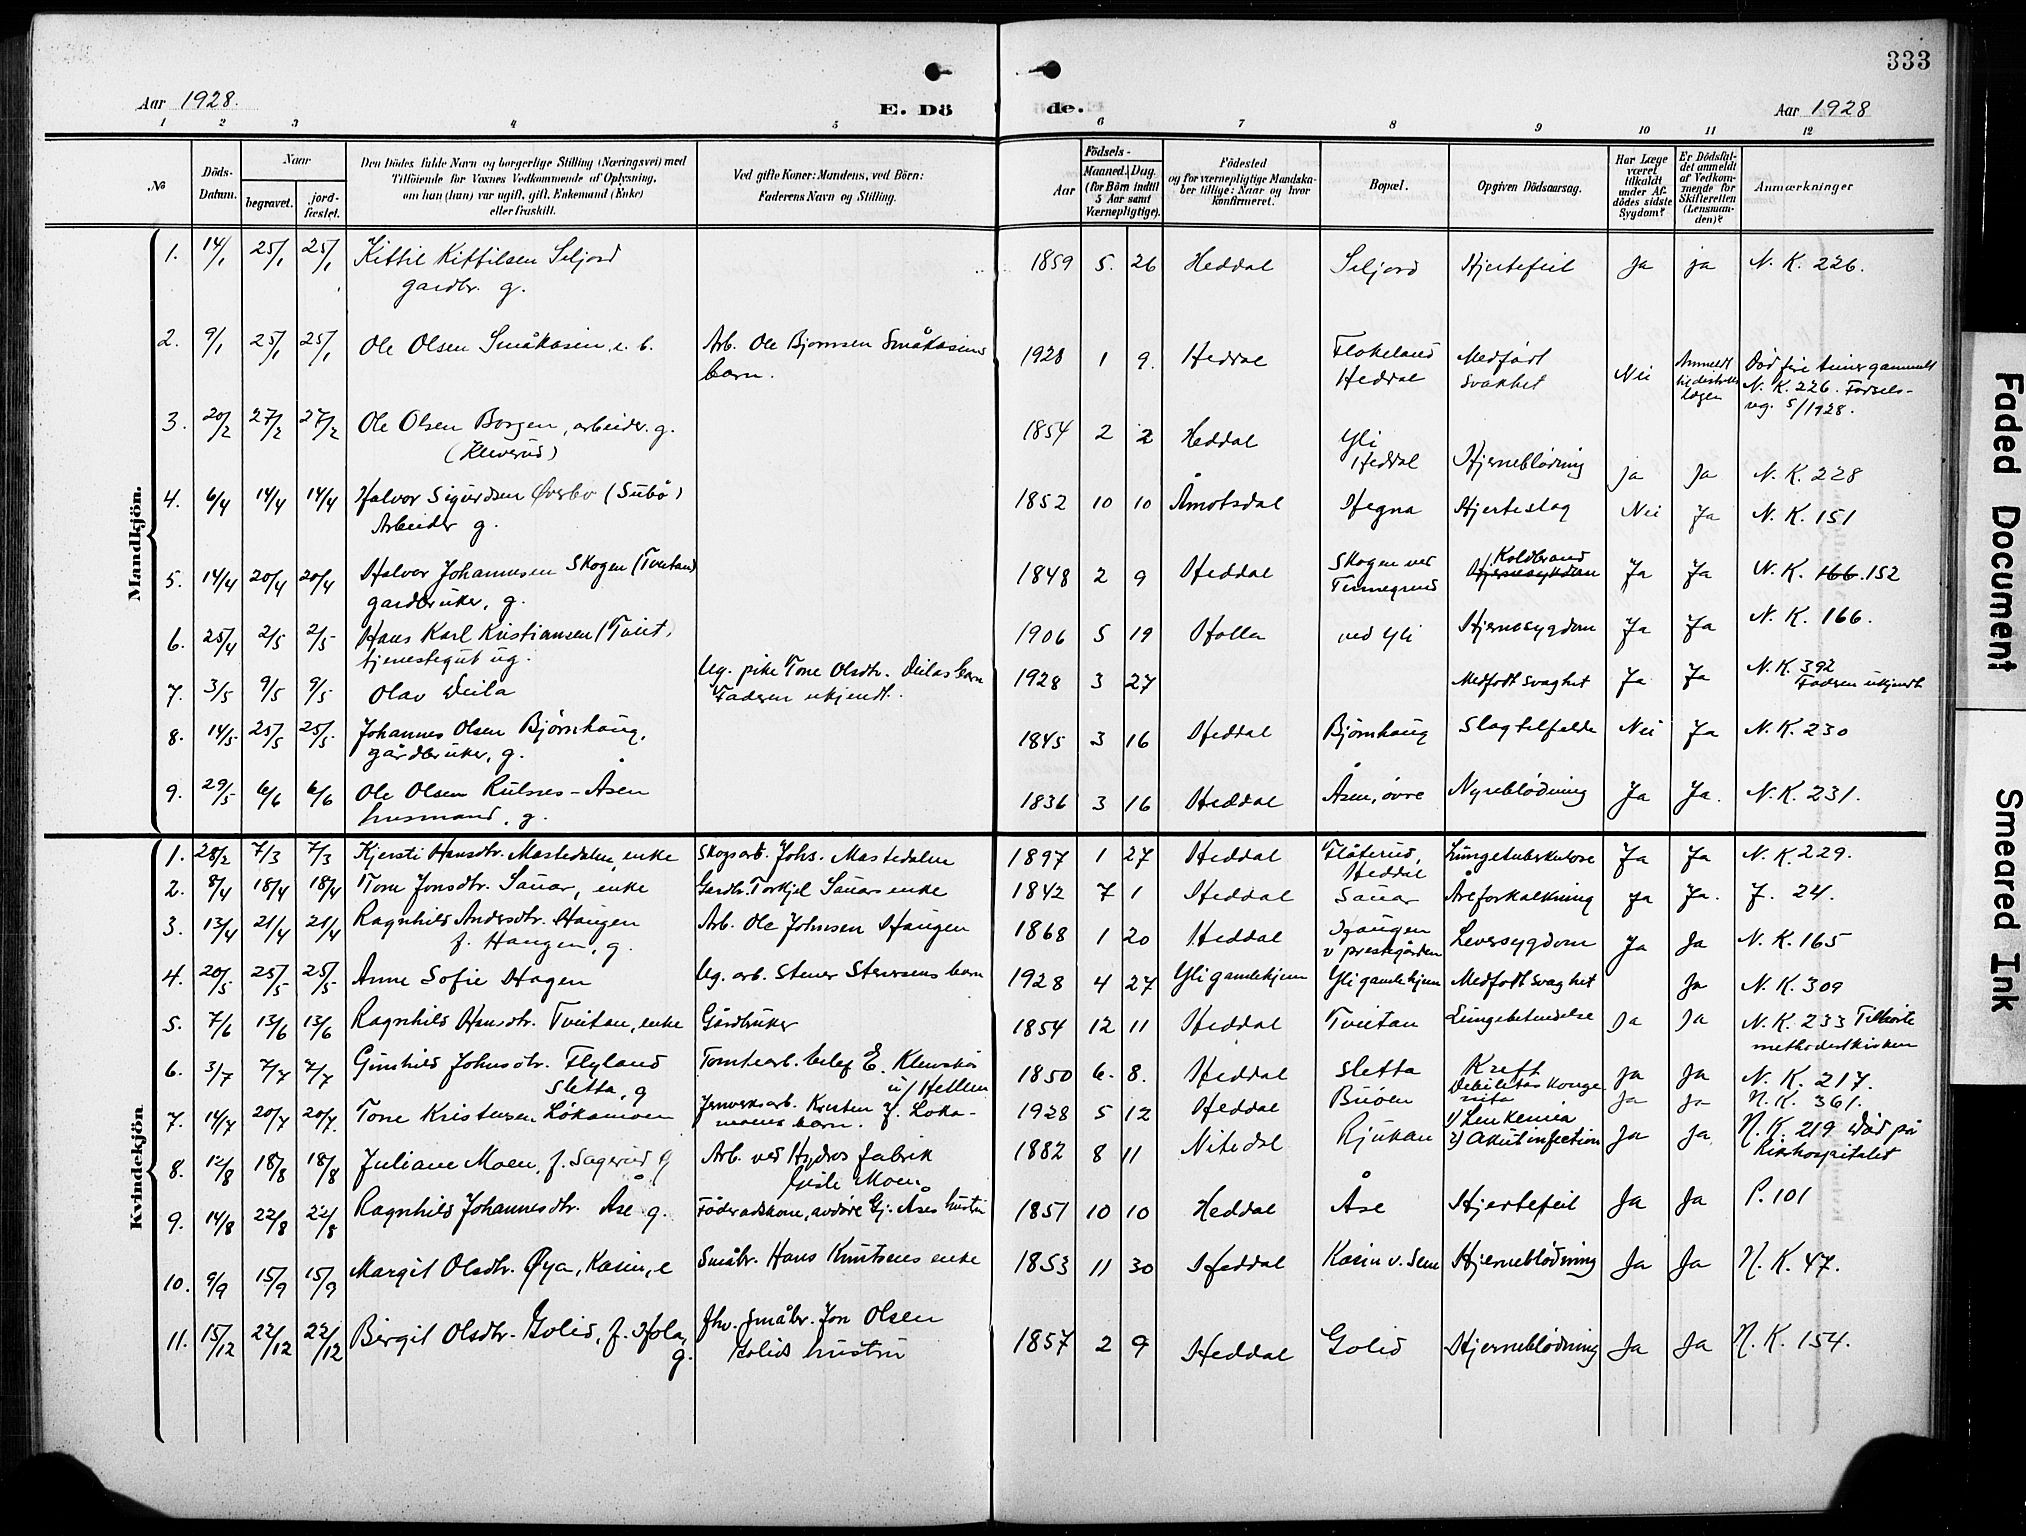 333
Aar 1928.
E. Döde.
Aar 1928
1 2 3 4 5 6 7 8 9 10 11 12
No
Döds-Datum.
Naar
begravet.
jord-fæstet.
Den Dödes fulde Navn og borgerlige Stilling (Næringsvei) med
Tilföiende for Voxnes Vedkommende af Oplysning,
om han (hun) var ugift, gift, Enkemand (Enke)
eller fraskilt.
Ved gifte Koner: Mandens, ved Börn:
Faderens Navn og Stilling.
Födsels-
Aar
Maaned. Dag.
(for Börn indtil
5 Aar samt
Værnepligtige).
Födested
og for værnepligtige Mandska-
ber tillige: Naar og hvor
konfirmeret.
Bopæl.
Opgiven Dödsaarsag.
Har Læge
været
tilkaldt
under Af-
dödes sidste
Sygdom?
Er Dödsfal-
det anmeldt
af Vedkom-
mende for
Skifteretten
(Lensman-
den)?
Anmærkninger
Mandkjön.
1. 14/1 25/1 25/1 Kittil Kittilsen Seljord 1859 5. 26 Heddal Seljord Hjertefeil Ja ja N. K. 226.
gardbr. g.
2. 9/1 25/1 25/1 Ole Olsen Småkasin, e. b. Arb. Ole Bjørnsen Småkasins 1928 1 9. Heddal Flokeland Medfødt Nei Anmeldt Død fire timer gammelt
barn. Heddal svakhet lægen N. K. 226. Fødsels-
reg. 5/1928.
3. 20/2 27/2 27/2 Ole Olsen Borgen, arbeider. g. 1854 2 2 Heddal Yli Hjerneblødning ja Ja N. K. 228
(Kleverud) Heddal
4. 6/4 14/4 14/4 Halvor Sigurdsen Øverbø (Subø) 1852 10 10 Åmotsdal Hegna Hjerteslag Nei Ja N. K. 151
Arbeider g.
5. 14/4 20/4 20/4 Halvor Johannesen Skogen (Tveitan) 1848 2 9 Heddal Skogen ved Koldbrand Ja Ja N. K. 166. 152
gardbruker, g. Tinnegrend Hjernesykdom
6. 25/4 2/5 2/5 Hans Karl Kristiansen (Tveit) 1906 5 19 Holla ved Yli Hjernesygdom Ja Ja N. K. 166.
tjenestegut ug.
7. 3/5 9/5 9/5 Olav Deila Ug. pike Tone Olsdtr. Deilas barn 1928 3 27 Medfødt svaghet Ja Ja N. K. 392
Faderen ukjendt. Faderen ukjendt
8. 14/5 25/5 25/5 Johannes Olsen Bjørnhaug, 1845 3 16 Heddal Bjørnhaug Slagtilfelde Nei Ja N. K. 230
gårdbruker, g.
9. 29/5 6/6 6/6 Ole Olsen Rulsnes-Åsen 1836 3 16 Heddal Åsen, øvre Nyreblødning Ja Ja. N. K. 231.
husmand, g.
Kvindekjön
1. 28/2 7/3 7/3 Kjersti Hansdtr. Mastedalen, enke Skogsarb. Johs. Mastedalen 1897 1 27 Heddal Flåterud, Lungetuberkulose Ja Ja N. K. 229.
Heddal
2. 8/4 18/4 18/4 Tone Jonsdtr. Sauar, enke Gardbr. Torkjel Sauars enke 1842 7 1 Heddal Sauar Åreforkalkning ja Ja. J. 24.
3. 13/4 21/4 21/4 Ragnhild Andersdtr. Haugen Arb. Ole Johnsen Haugen 1868 1 20 Heddal Haugen Leversygdom Ja Ja N. K. 165
f. Haugen, g. v prestegården
4. 20/5 25/5 25/5 Anne Sofie Hagen Ug. arb. Stener Stenersens barn 1928 4 27 Yli gamlehjem Yli gamlehjem Medfødt svaghet Ja N. K. 309
5. 7/6 13/6 13/6 Ragnhild Hansdtr. Tveitan, enke Gårdbruker 1854 12 11 Heddal Tveitan Lungebetendelse Ja Ja N. K. 233 Tilhørte
methodistkirken
6. 3/7 7/7 7/7 Gunhild Johnsdtr. Flyland 1850 6. 8. Heddal Sletta Kreft Ja Ja N. K. 217.
Sletta, g
7. 14/7 20/7 20/7. Tone Kristensen Løkamoen Jernverksarb. Kristen J. Løka- 1928 5 12 Heddal Buøen Debilitas konge- Ja Ja N. K. 361.
moens barn. nita
8. 12/8 18/8 18/8 Juliane Moen, f. Sagerud g Arb. ved Hydros fabrik 1882 8 11 Nitedal Rjukan 1) Leukemia Ja Ja. N. K. 219 Død på
Gisle Moen 2) Akut infection Rikshospitalet
9. 14/8 22/8 22/8 Ragnhild Johannesdtr. Åse g. Føderådskone, avdøde Gj. Åses hustru 1851 10 10 Heddal Åse Hjertefeil Ja Ja P. 101
10. 9/9 15/9 15/9 Margit Olsdtr. Øya, Kasin, e Småbr. Hans Knutsens enke 1853 11 30 Heddal Kasin v. Sem Hjerneblødning Ja Ja N. K. 47.
11. 15/12 22/12 22/12 Birgit Olsdtr. Golid, f. Hola, g. Fhv. småbr. Jon Olsen 1857 2 9 Heddal Golid Hjerneblødning Ja Ja N. K. 154.
Golids hustru
Faded Document
Smeared Ink